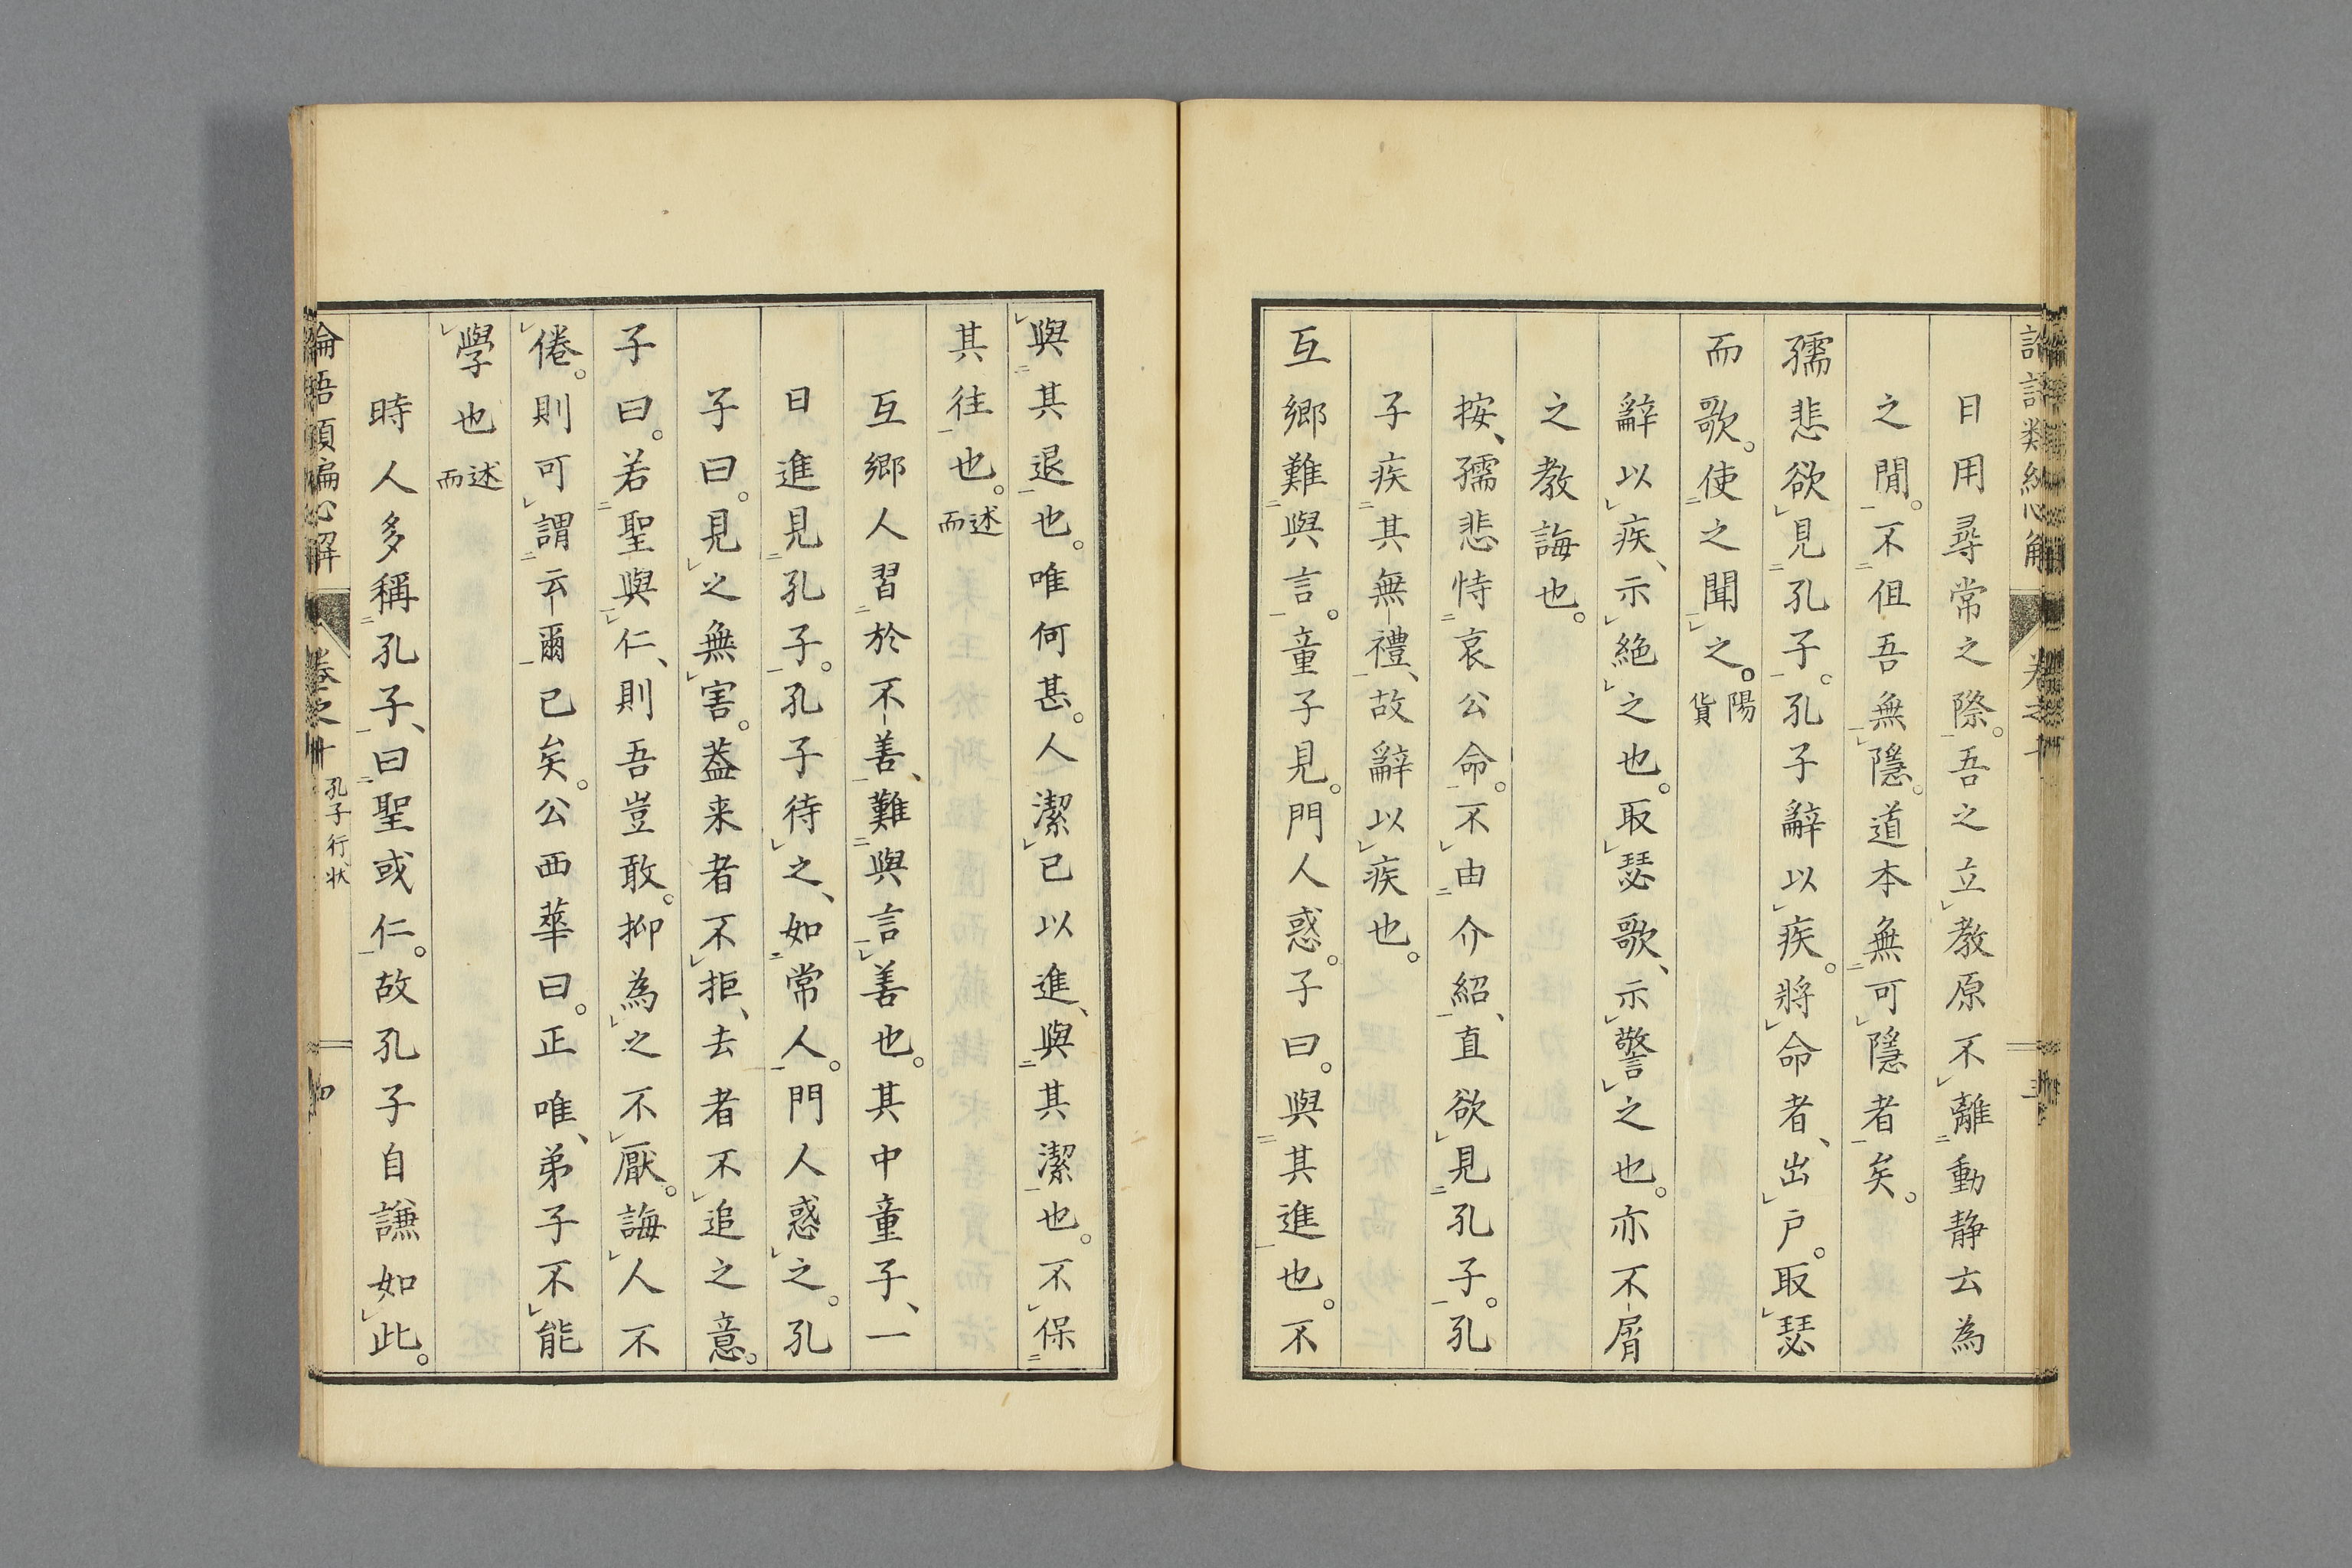 日用尋常之際。吾之立教原不離動静云為
之間。不但吾無隱。道本無可隱者矣。
孺悲欲見孔子。孔子辭以疾。將命者、出戸。取瑟
而歌。使之聞之。陽貨
辭以疾、示絶之也。取瑟歌、示警之也。亦不屑
之教誨也。
按、孺悲恃哀公命。不由介紹、直欲見孔子。孔
子疾其無禮、故辭以疾也。
互鄉難與言。童子見。門人惑。子曰。與其進也。不
與其退也。唯何甚。人潔已以進、與其潔也。不保
其往也。述而
互鄉人習於不善、難與言善也。其中童子、一
日進見孔子。孔子待之、如常人。門人惑之。孔
子曰。見之無害。葢来者不拒、去者不追之意。
子曰。若聖與仁、則吾豈敢。抑為之不厭。誨人不
倦。則可謂云爾已矣。公西華曰。正唯、弟子不能
學也 述而
時人多稱孔子、曰聖或仁。故孔子自謙如此。
孔子行状